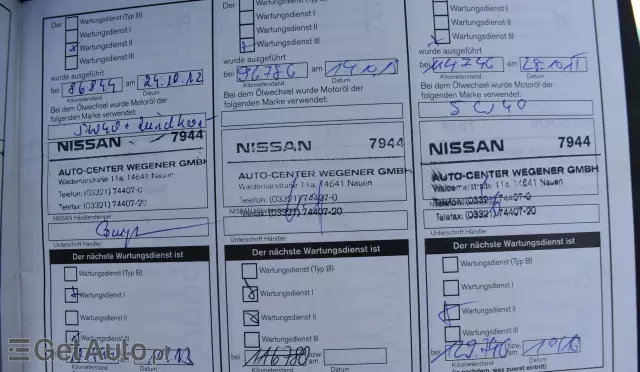 Der
Wartungsdienst (Typ B)
Wartungsdienst I
Wartungsdienst II
Wartungsdienst III
wurde ausgeführt
bei 86844 am 24.10.12
Kilometerstand Datum
Bei dem Ölwechsel wurde Motoröl der
folgenden Marke verwendet:
5W40 +
NISSAN 7944
AUTO-CENTER WEGENER GMBH
Waldemarstraße 11a, 14641 Nauen
Telefon: (03321) 74407-0
Telefax: (03321) 74407-20
NISSAN Händlerstempel
Unterschrift Händler
Der nächste Wartungsdienst ist
Wartungsdienst (Typ B)
Wartungsdienst I
Wartungsdienst II
Wartungsdienst III
Kilometerstand Datum
Der
Wartungsdienst I
Wartungsdienst II
Wartungsdienst III
wurde ausgeführt
bei 96786 am
Kilometerstand Datum
Bei dem Ölwechsel wurde Motoröl der
folgenden Marke verwendet:
NISSAN 7944
AUTO-CENTER WEGENER GMBH
Waldemarstraße 11a, 14641 Nauen
Telefon: (03321) 74407-0
Telefax: (03321) 74407-20
Unterschrift Händler
Der nächste Wartungsdienst ist
Wartungsdienst (Typ B)
Wartungsdienst I
Wartungsdienst II
Wartungsdienst III
bei 116780 bzw. am
Kilometerstand Datum
Wartungsdienst I
Wartungsdienst II
Wartungsdienst III
wurde ausgeführt
bei 114746 am
Kilometerstand Datum
Bei dem Ölwechsel wurde Motoröl der
folgenden Marke verwendet:
5W40
NISSAN 7944
AUTO-CENTER WEGENER GMBH
Waldemarstraße 11a, 14641 Nauen
Telefon: (03321) 74407-0
Telefax: (03321) 74407-20
Unterschrift Händler
Der nächste Wartungsdienst ist
Wartungsdienst (Typ B)
Wartungsdienst I
Wartungsdienst II
Wartungsdienst III
bei 129740 bzw. am 10/16
Kilometerstand Datum
was zuerst eintritt)
GetAuto.pl